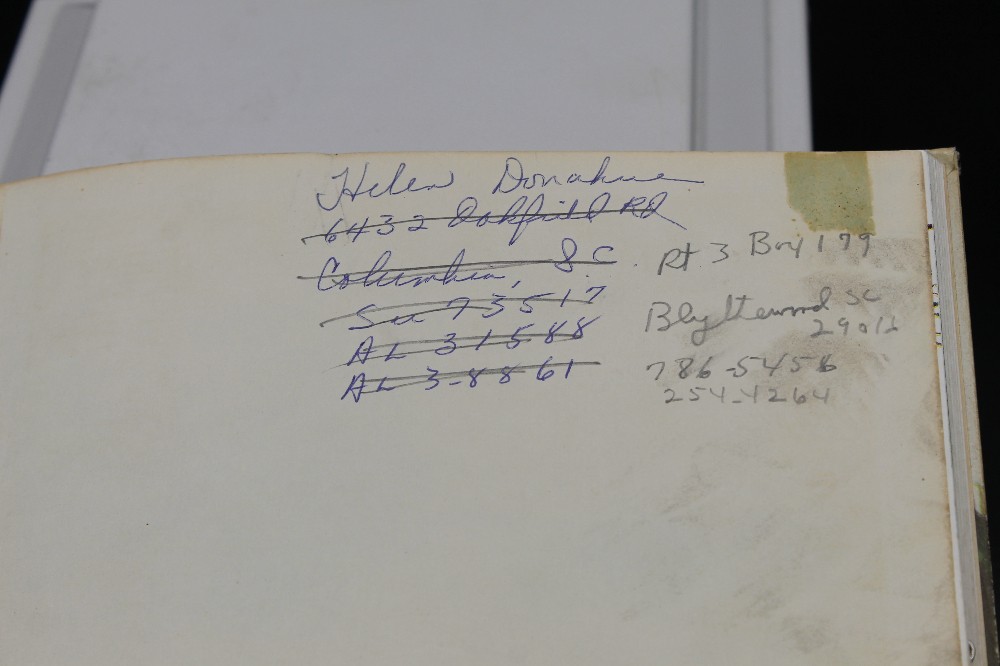 Helen Donahue
6432 Oakfield Rd
Columbia, SC
Su 73517
AL 31588
AL 3-8861
Rt 3 Box 199
Blythewood SC
29016
786-5456
254-4264